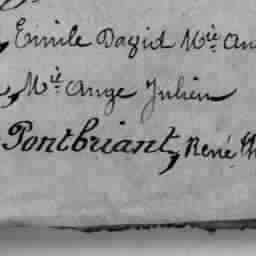 , Emile David Mie An
, Mie Ange Julien
Pontbriant, René